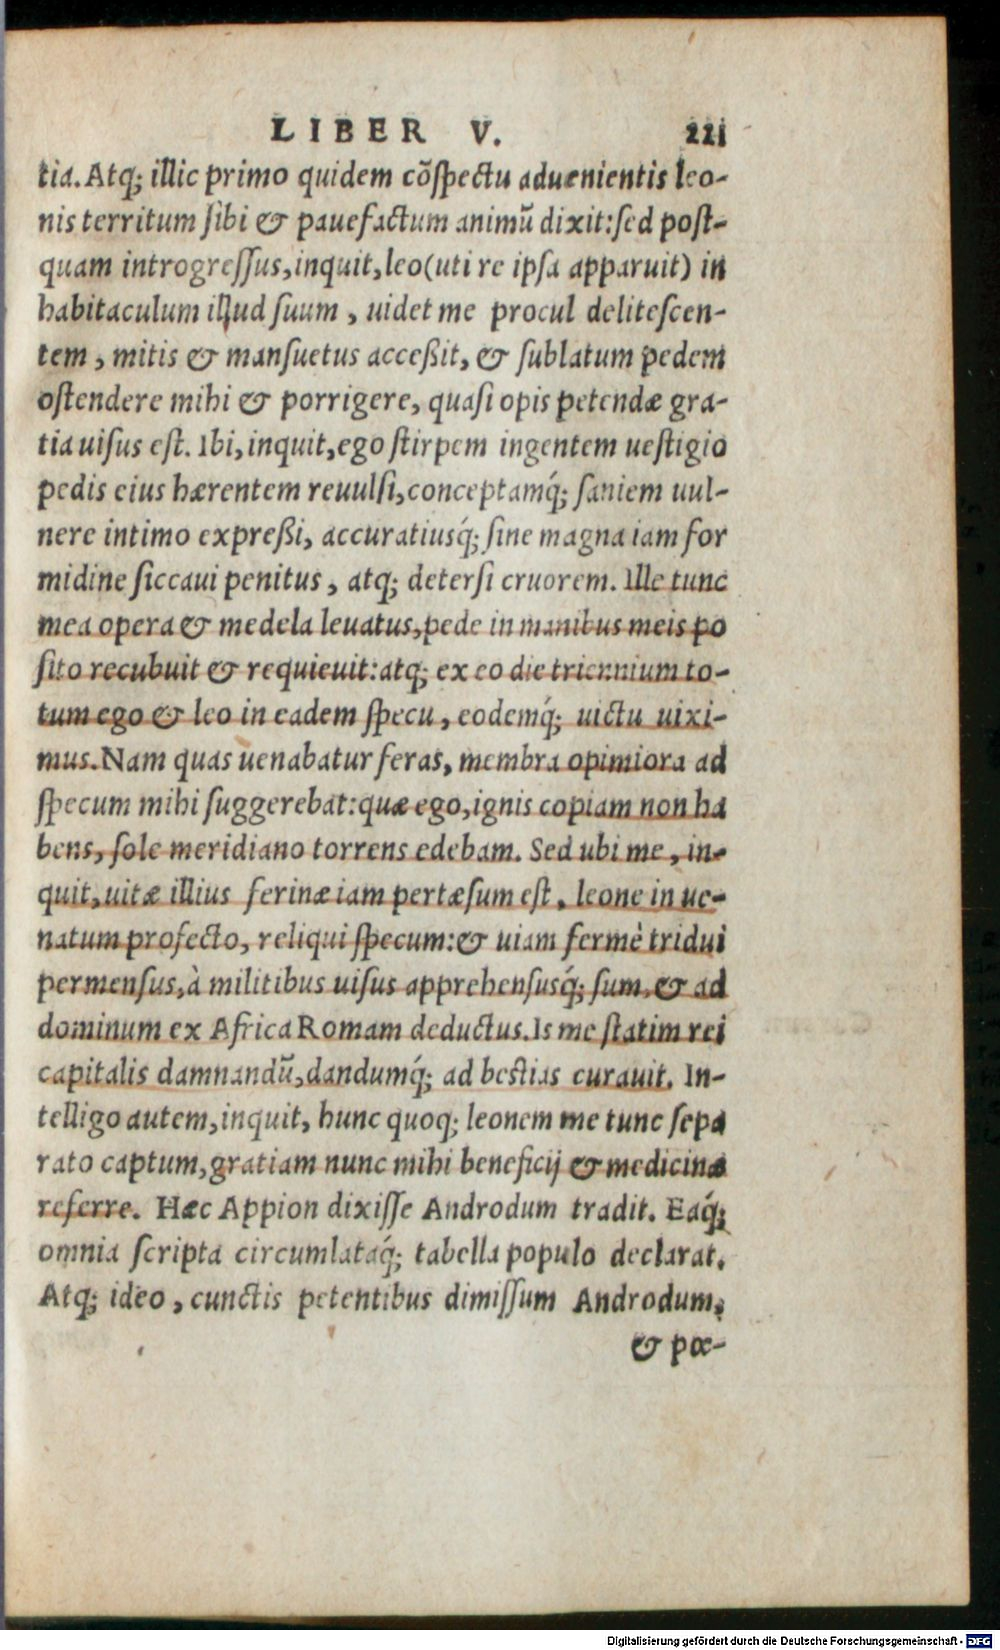 LIBER V. 221
tia. Atq; illic primo quidem cõſpectu aduenientis leo-
nis territum ſibi & pauefactum animũ dixit: ſed poſt-
quam introgreſſus, inquit, leo (uti re ipſa apparuit) in
habitaculum illud ſuum, uidet me procul deliteſcen-
tem, mitis & manſuetus acceßit, & ſublatum pedem
oſtendere mihi & porrigere, quaſi opis petendæ gra-
tia uiſus eſt. Ibi, inquit, ego ſtirpem ingentem ueſtigio
pedis eius hærentem reuulſi, conceptamq́; ſaniem uul-
nere intimo expreßi, accuratiusq́; ſine magna iam for
midine ſiccaui penitus, atq; deterſi cruorem. Ille tunc
mea opera & medela leuatus, pede in manibus meis po
ſito recubuit & requieuit: atq; ex eo die triennium to-
tum ego & leo in eadem ſpecu, eodemq́; uictu uixi-
mus. Nam quas uenabatur feras, membra opimiora ad
ſpecum mihi ſuggerebat: quæ ego, ignis copiam non ha
bens, ſole meridiano torrens edebam. Sed ubi me, in-
quit, uitæ illius ferinæ iam pertæſum eſt, leone in ue-
natum profecto, reliqui ſpecum: & uiam fermè tridui
permenſus, à militibus uiſus apprehenſusq́; ſum, & ad
dominum ex Africa Romam deductus. Is me ſtatim rei
capitalis damnandũ, dandumq́; ad beſtias curauit. In-
telligo autem, inquit, hunc quoq; leonem me tunc ſepa
rato captum, gratiam nunc mihi beneficij & medicinæ
referre. Hæc Appion dixiſſe Androdum tradit. Eaq́;
omnia ſcripta circumlataq́; tabella populo declarat.
Atq; ideo, cunctis petentibus dimiſſum Androdum,
& pœ-
Digitalisierung gefördert durch die Deutsche Forschungsgemeinschaft - DFG